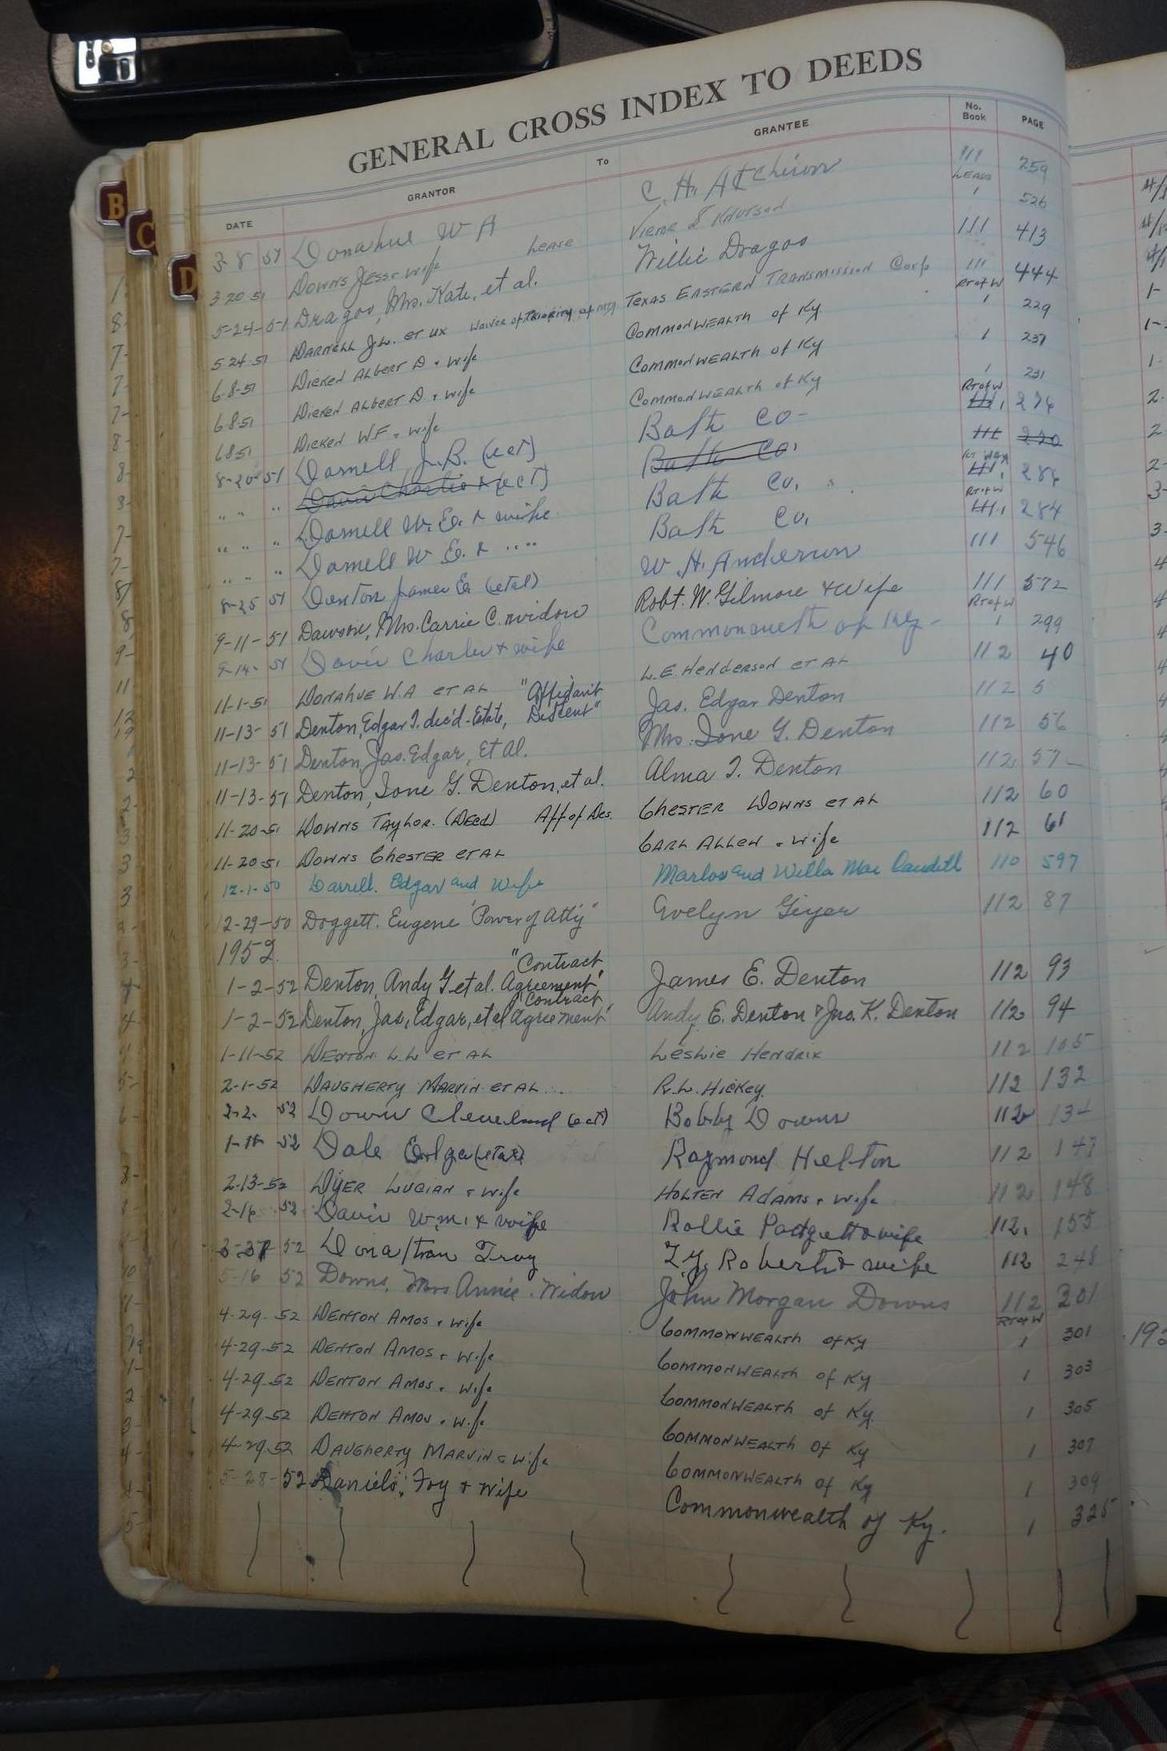 GENERAL CROSS INDEX TO DEEDS
DATE GRANTOR To GRANTEE No. Book PAGE
3-8-51 Donahue W A C. H. Atchison 111 259
3-20-51 Downs Jess & wife Lease Lease 1 526
5-24-51 Dragoo, Mrs. Kate, et al. Willie Dragoo 111 413
5-24-51 Darnell J.W. et ux Waiver of Priority of Texas Eastern Transmission Corp 111 444
6-8-51 Dicken Albert D & wife Commonwealth of Ky Rt of W 1 229
6-8-51 Dicken Albert D & wife Commonwealth of Ky 1 237
6-8-51 Dicken W.F & wife Commonwealth of Ky 1 231
8-20-51 Darnell J.B. (ect) Bath Co- Rt of W 276
" " " Davis Charlie & (ect) Bath Co. 111 280
" " " Darnell W. E. & wife Bath Co. Rt Way 286
" " " Darnell W E. & " " Bath Co. Rt of W 284
8-25-51 Denton James E. (etal) W. H. Anderson 111 546
9-11-51 Dawson, Mrs. Carrie C. widow Robt. W. Gilmore & Wife 111 572
9-14-51 Davis Charles & wife Commonweth of Ky- Rt of W 1 299
11-1-51 Donahue W.A et al L.E. Henderson et al 112 40
11-13-51 Denton, Edgar T. dec'd-Estate, "Affidavit Descent" Jas. Edgar Denton 112 5
11-13-51 Denton, Jas. Edgar, Et Al. Mrs. Ione G. Denton 112 56
11-13-51 Denton, Ione G. Denton, et al. Alma T. Denton 112 57
11-20-51 Downs Taylor. (Decd) Aff of Des. Chester Downs et al 112 60
11-20-51 Downs Chester et al Carl Allen & wife 112 61
12-1-50 Darrell. Edgar and Wife Marlos and Willa Mae Caudill 110 597
12-29-50 Doggett. Eugene "Power of Atty" Evelyn Geyer 112 87
1952
1-2-52 Denton, Andy G. et al. "Contract Agreement" James E. Denton 112 93
1-2-52 Denton, Jas, Edgar, et al "Contract agreement" Andy E. Denton & Jno. K. Denton 112 94
1-11-52 Denton L.L et al Leslie Hendrix 112 105
2-1-52 Daugherty Marvin et al R.L. Hickey 112 132
2-2-52 Down Cleveland (ect) Bobby Downs 112 134
52 Dale (etal) Raymond Helton 112 147
2-13-52 Dyer Lucian & wife Holten Adams & wife 112 148
2-16 52 Davis Wm. & wife Rollie Padgett & wife 112. 155
52 Donathan Troy Roberts & wife 112 248
5-16 52 Downs, Mrs Annie. Widow John Morgan Downs 112 301
4-29-52 Denton Amos & wife Commonwealth of Ky Rt of W 1 301
4-29-52 Denton Amos & wife Commonwealth of Ky 1 303
4-29-52 Denton Amos & wife Commonwealth of Ky 1 305
4-29-52 Denton Amos & wife Commonwealth of Ky 1 307
4-29-52 Daugherty Marvin & wife Commonwealth of Ky 1 309
5-28-52 Daniels, Foy & wife Commonwealth of Ky. 1 325
B
C
D